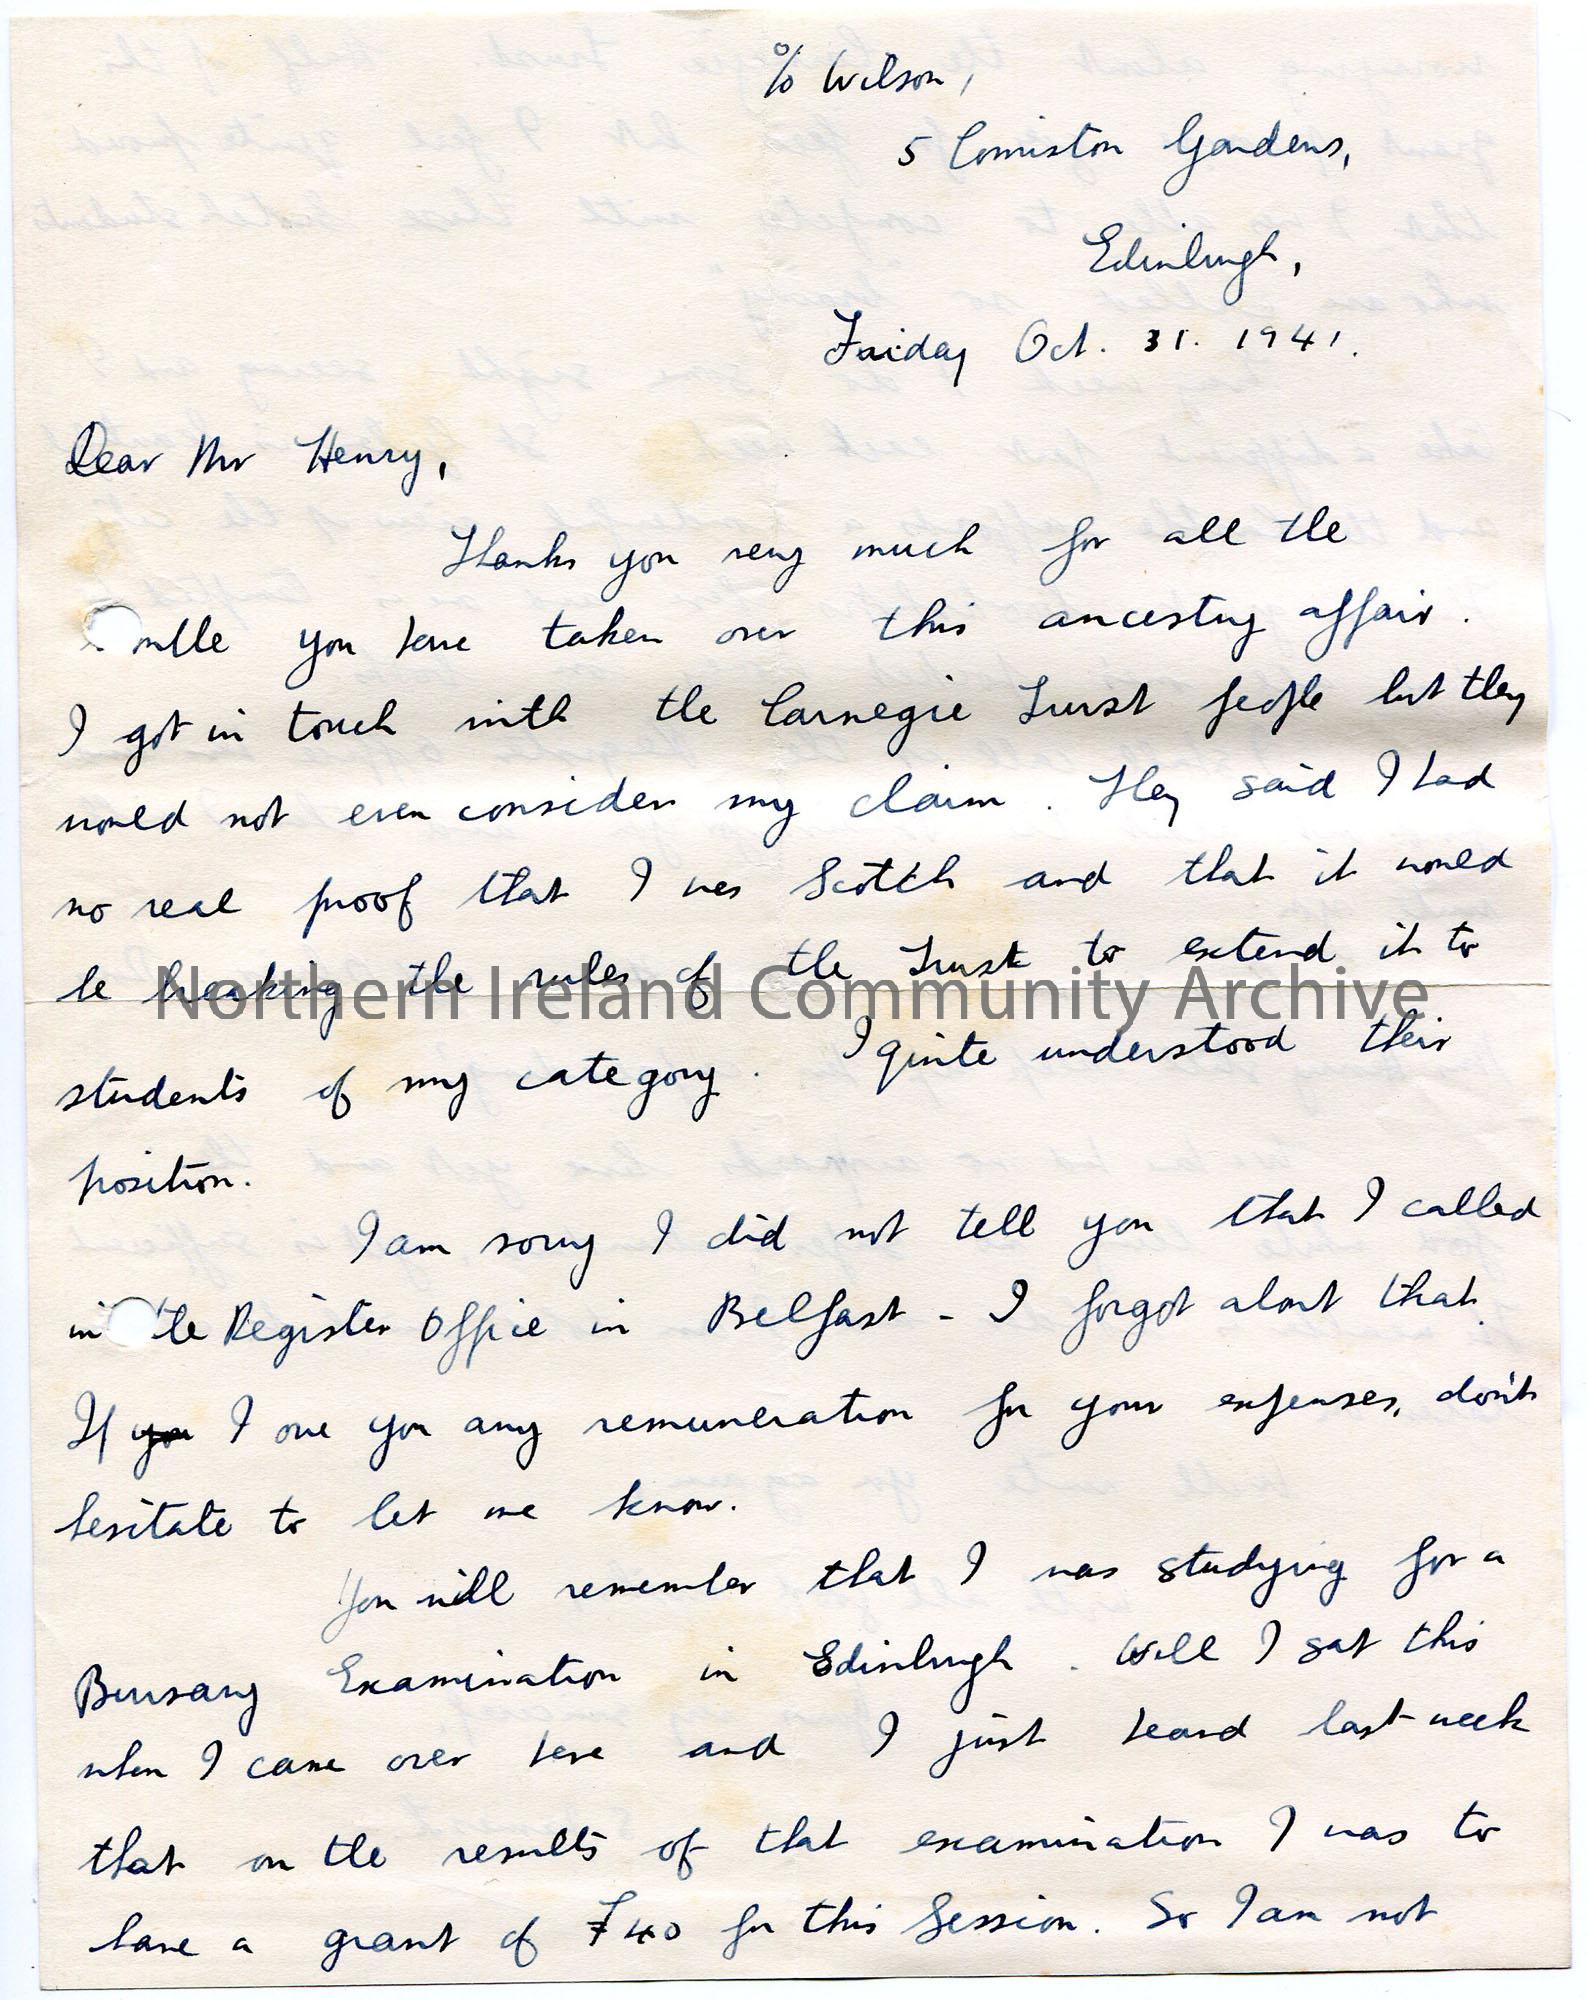 c/o Wilson,
5 Comiston Gardens,
Edinburgh,
Friday Oct. 31. 1941.
Dear Mr Henry,
Thanks you very much for all the
ouble you have taken over this ancestry affair.
I got in touch with the Carnegie Trust people but they
would not even consider my claim. They said I had
no real proof that I was Scotch and that it would
be breaking the rules of the Trust to extend it to
Northern Ireland Community Archive
students of my category. I quite understood their
position.
I am sorry I did not tell you that I called
in the Register Office in Belfast - I forgot about that.
If you I owe you any remuneration for your expenses, don't
hesitate to let me know.
You will remember that I was studying for a
Bursary Examination in Edinburgh. Well I sat this
when I came over here and I just heard last week
that on the results of that examination I was to
have a grant of £40 for this Session. So I am not